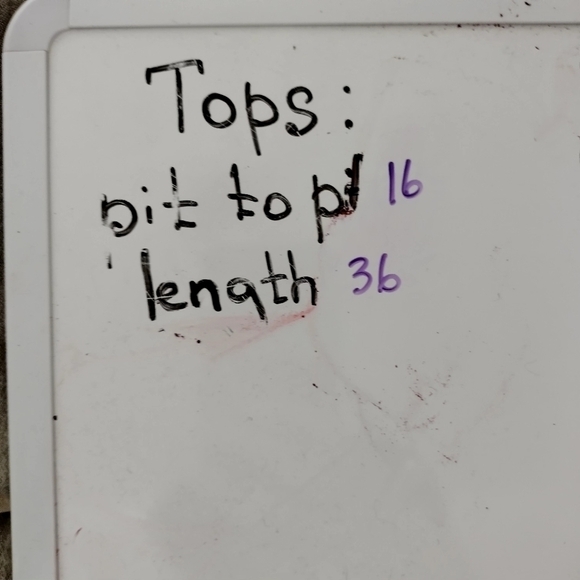 Tops:
pit to pit 16
length 36